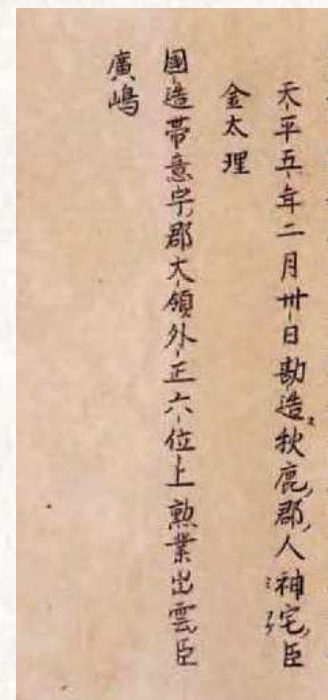 天平五年二月卅日勘造秋鹿郡人神宅臣
金太理
國造帯意宇郡大領外正六位上勲業出雲臣
廣嶋